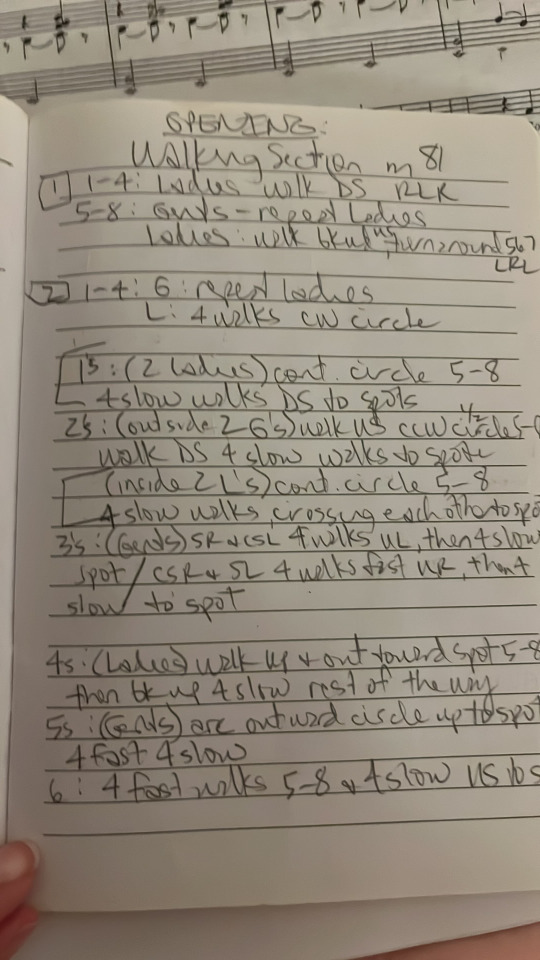 OPENING:
Walking Section m 81
1 1-4: Ladies - walk DS RLR
5-8: Gents - repeat Ladies
Ladies: walk bkwd US, turn around 567
LRL
2 1-4: G: repeat ladies
L: 4 walks CW circle
1's: (2 Ladies) cont. circle 5-8
4 slow walks DS to spots
2's: (outside 2 G's) walk US CCW 1/2 circle 5-8
walk DS 4 slow walks to spots
(inside 2 L's) cont. circle 5-8
4 slow walks, crossing each other to spo
3's: (Gents) SR + CSL 4 walks UL, then 4 slow
spot / CSR + SL 4 walks fast UR, then 4
slow to spot
4s: (Ladies) walk up + out toward spot 5-8
then bk up 4 slow rest of the way
5s: (Gents) arc outward circle up to spot
4 fast 4 slow
6: 4 fast walks 5-8 + 4 slow US to s